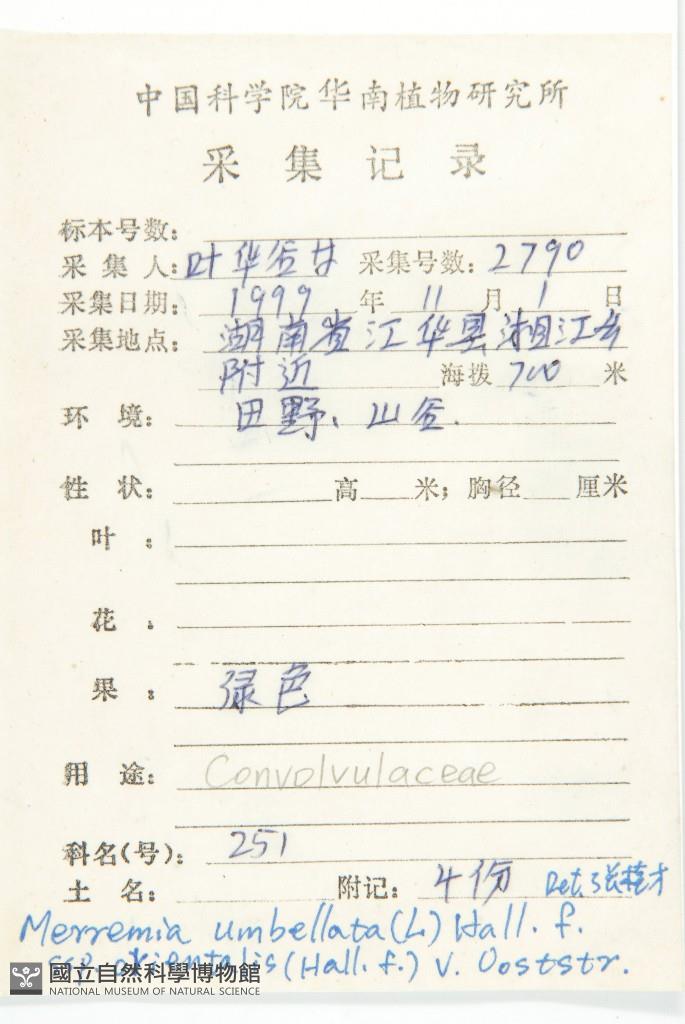 中国科学院华南植物研究所
采集记录
标本号数：
采集人：叶华谷甘 采集号数：2790
采集日期：1999年11月1日
采集地点：湖南省江华县湘江乡
附近 海拨700米
环境：田野、山谷.
性状： 高 米；胸径 厘米
叶：
花：
果：绿色
用途：Convolvulaceae
科名(号)：251
土名： 附记：4份 Det.
Merremia umbellata (L.) Hall. f.
ssp. orientalis (Hall. f.) V. Ooststr.
國立自然科學博物館
NATIONAL MUSEUM OF NATURAL SCIENCE